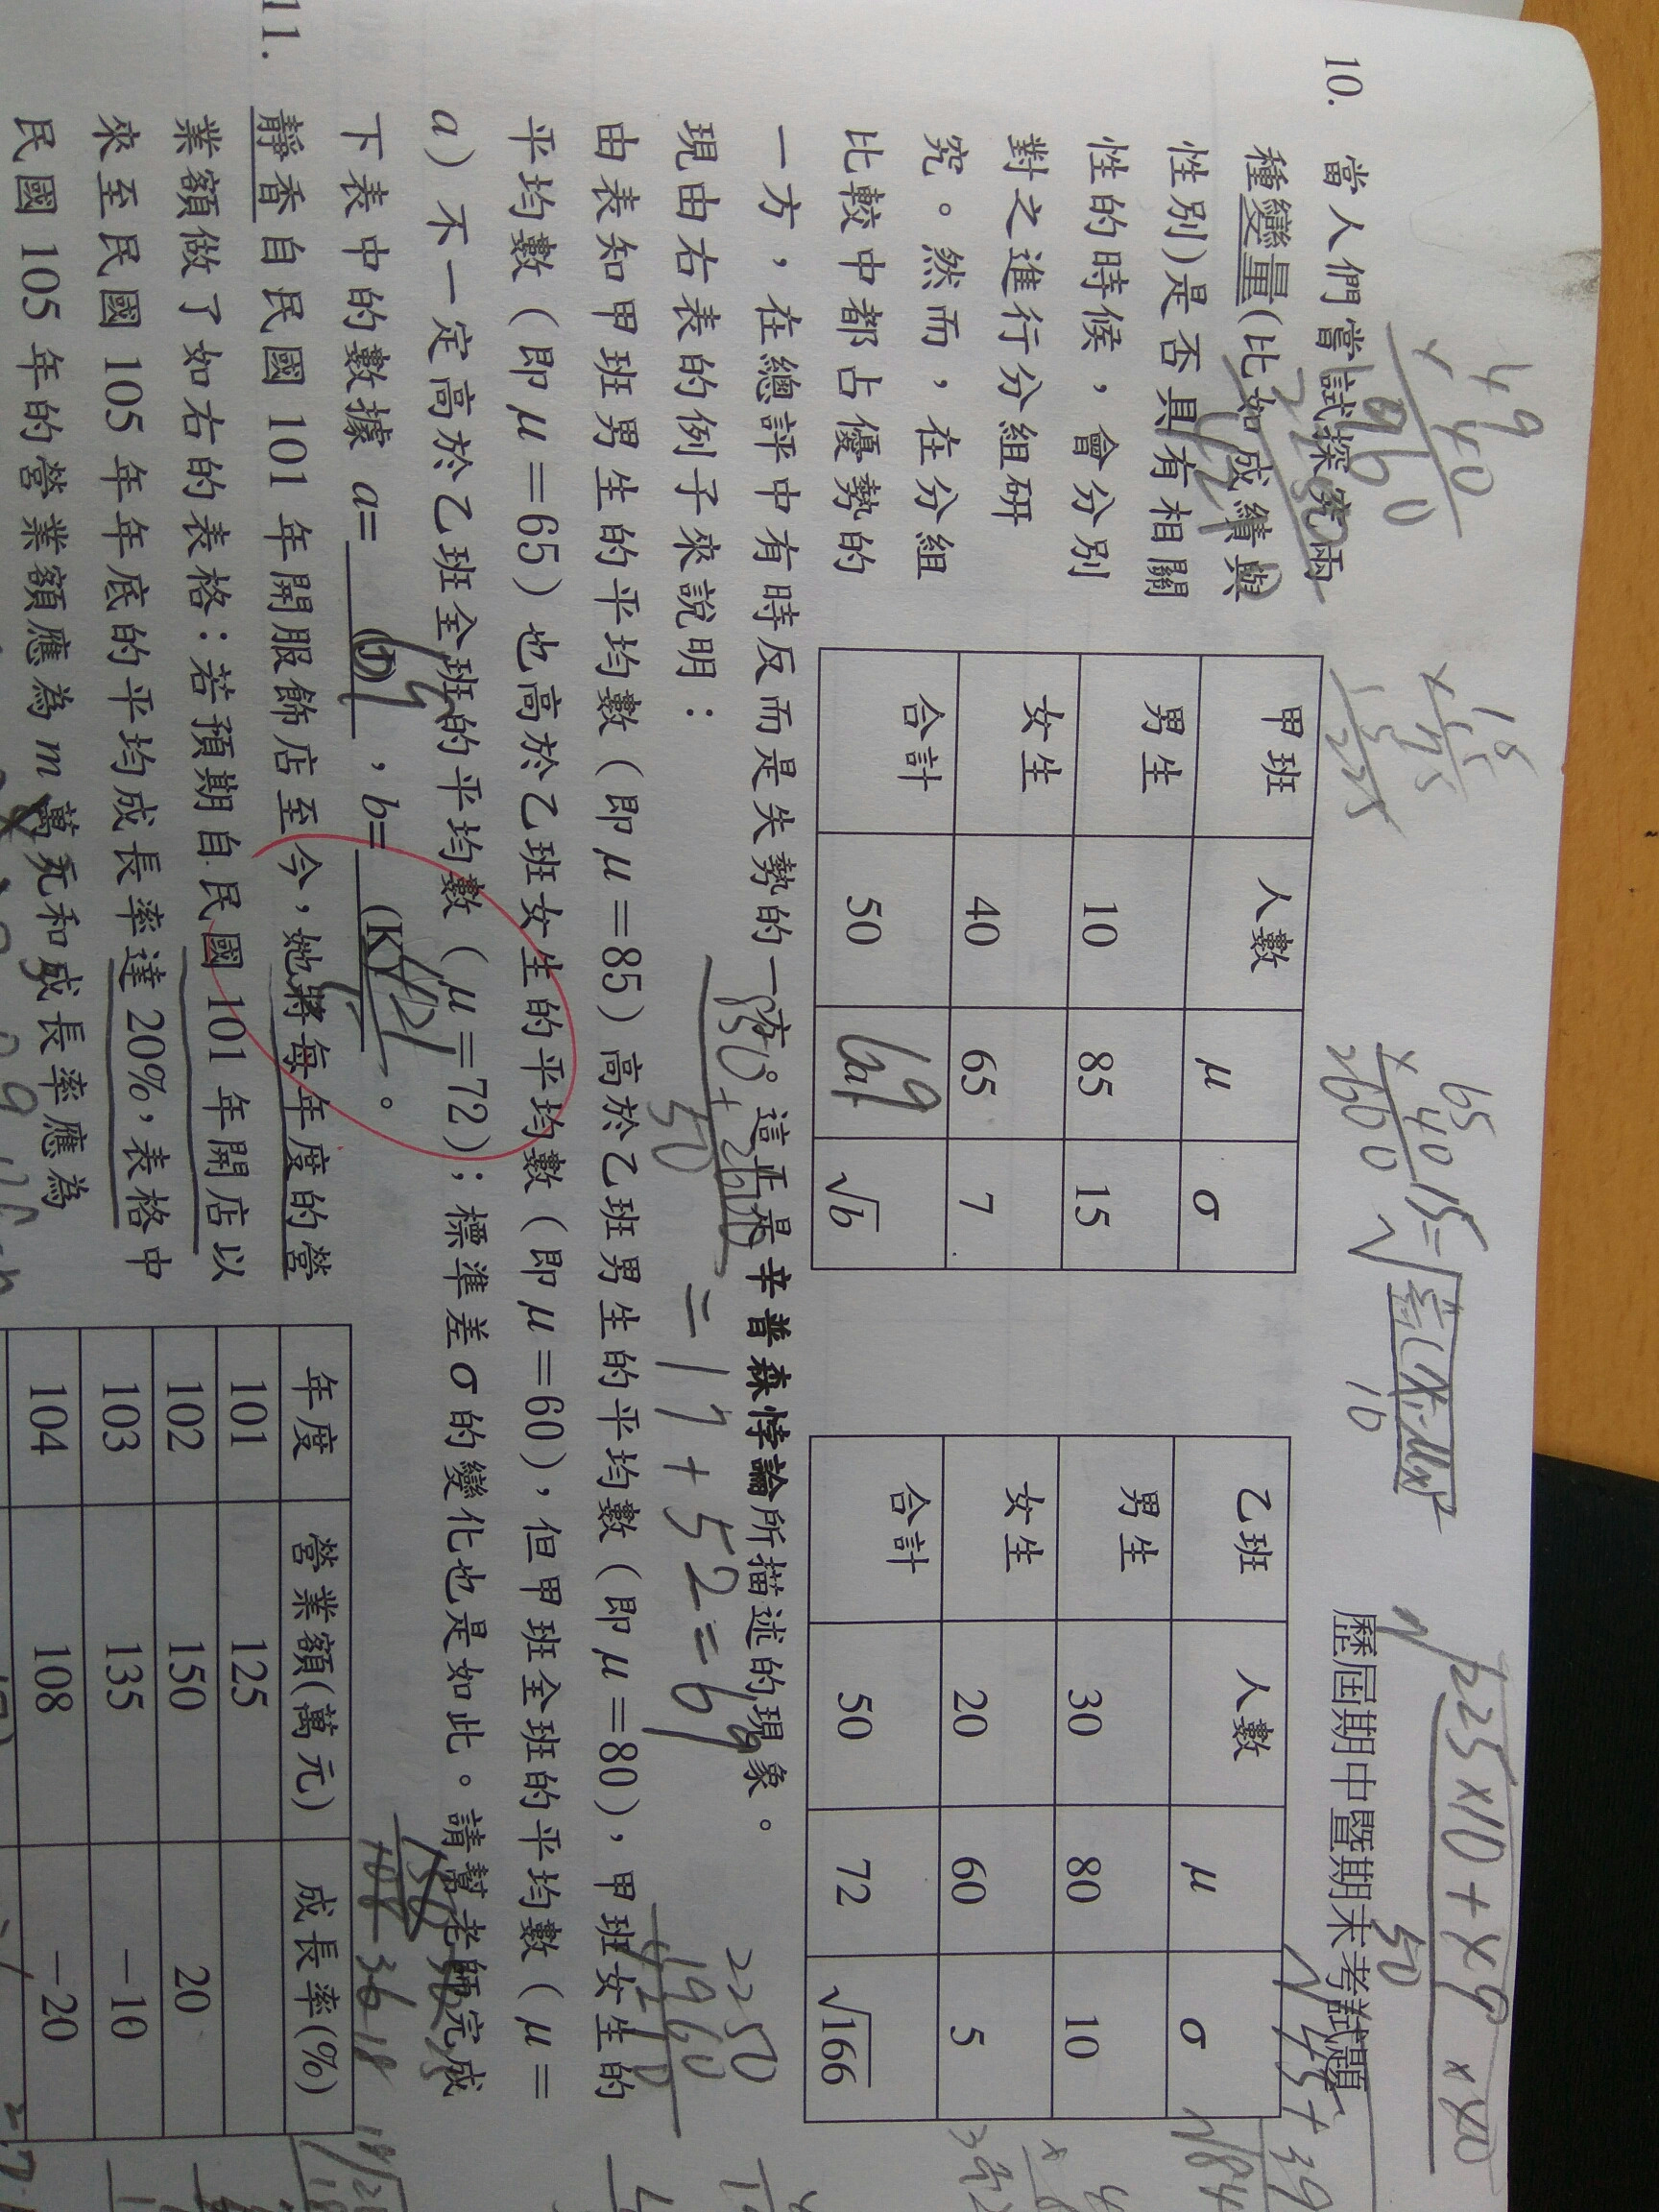 歷屆期中暨期末考試題
10. 當人們嘗試探究兩
種變量(比如成績與
性別)是否具有相關
性的時候，會分別
對之進行分組研
究。然而，在分組
比較中都占優勢的
甲班 人數 μ σ
男生 10 85 15
女生 40 65 7
合計 50 69 √b
乙班 人數 μ σ
男生 30 80 10
女生 20 60 5
合計 50 72 √166
一方，在總評中有時反而是失勢的一方。這正是辛普森悖論所描述的現象。
現由右表的例子來說明：
由表知甲班男生的平均數（即μ＝85）高於乙班男生的平均數（即μ＝80），甲班女生的
平均數（即μ＝65）也高於乙班女生的平均數（即μ＝60），但甲班全班的平均數（μ＝
a）不一定高於乙班全班的平均數（μ＝72）；標準差σ的變化也是如此。請幫老師完成
下表中的數據 a= (J) ，b= (K) 。
11. 靜香自民國 101 年開服飾店至今，她將每年度的營
業額做了如右的表格：若預期自民國 101 年開店以
來至民國 105 年年底的平均成長率達 20%，表格中
民國 105 年的營業額應為 m 萬元和成長率應為
年度 營業額(萬元) 成長率(%)
101 125
102 150 20
103 135 －10
104 108 －20
49
40
1960
15
x 15
225
65
40
2600
850+2600
50
=17+52=69
2250
1960